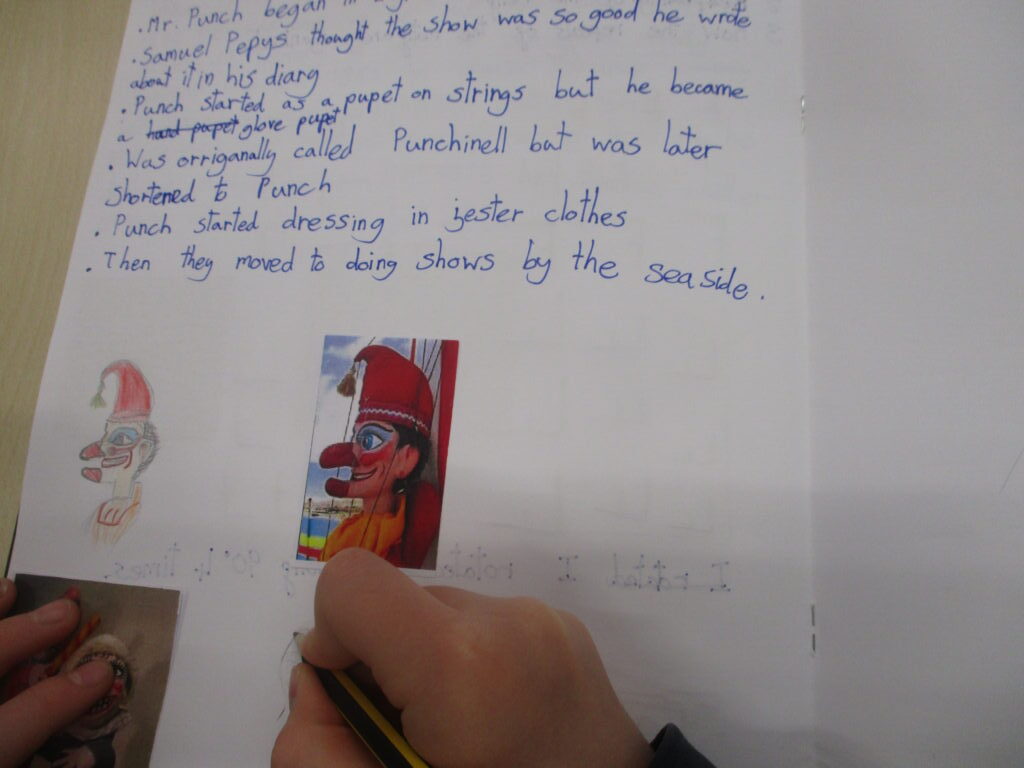 . Mr. Punch began in
. Samuel Pepys thought the show was so good he wrote
about it in his diary
. Punch started as a pupet on strings but he became
a hand pupet glove pupet
. Was orriganally called Punchinell but was later
shortened to Punch
. Punch started dressing in jester clothes
. Then they moved to doing shows by the sea side.